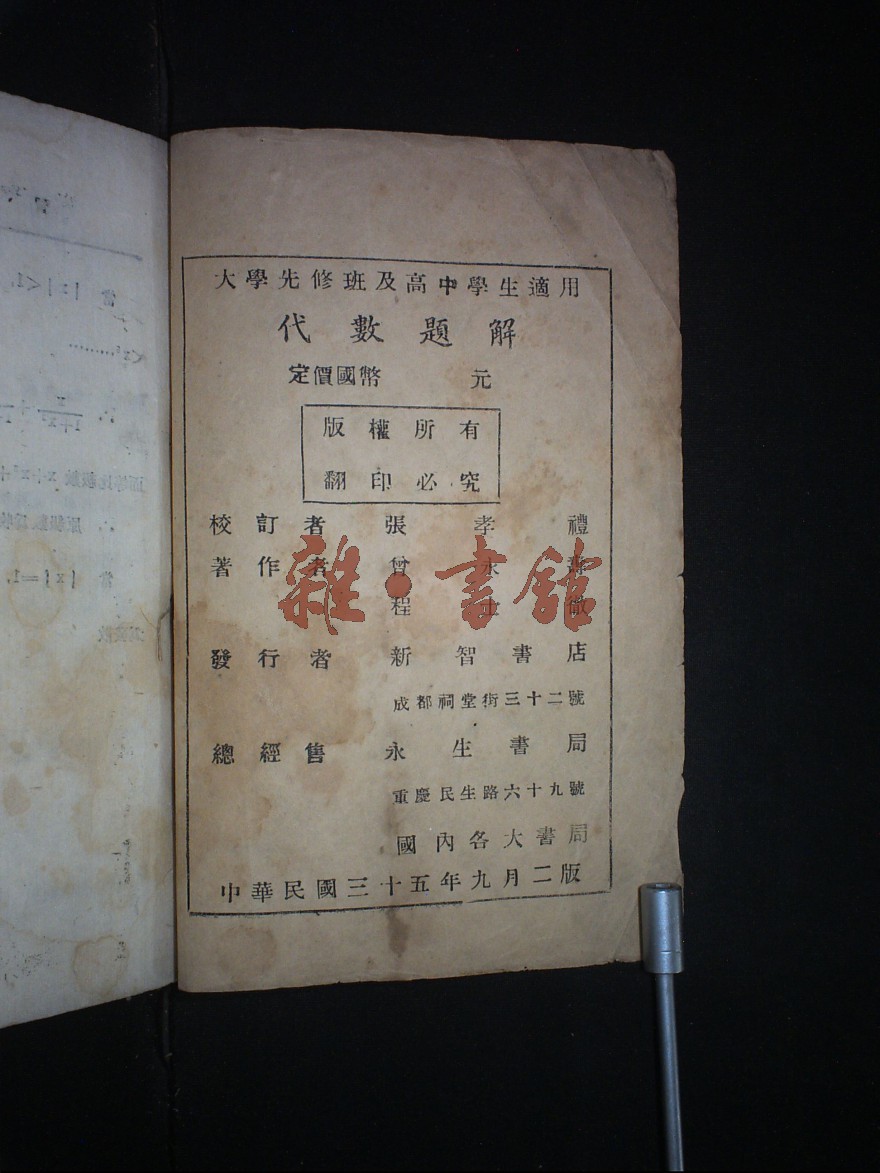 大學先修班及高中學生適用
代數題解
定價國幣 元
版權所有
翻印必究
校訂者 張孝禮
著作者 曾永壽
程士徵
發行者 新智書店
成都祠堂街三十二號
總經售 永生書局
重慶民生路六十九號
國內各大書局
中華民國三十五年九月二版
雜·書館